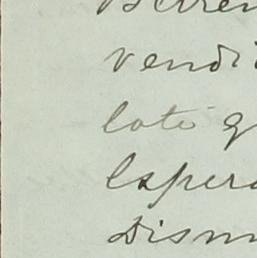 vendi
lote q
Espera
Dism